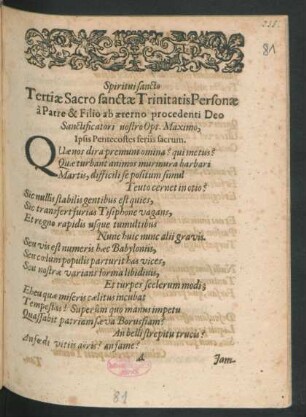 81
Spiritui sancto
Tertiæ Sacro sanctæ Trinitatis Personæ
à Patre & Filio ab æterno procedenti Deo
Sanctificatori nostro Opt. Maximo,
Ipsis Pentecostes feriis sacrum.
Quæ nos dira premunt omina? qui metus?
Quæ turbant animos murmura barbari
Martis, difficili se positum simul
Teuto cernet in otio?
Sic nullis stabilis gentibus est quies,
Sic transfert furias Tisiphone vagans,
Et regno rapidis usque tumultibus
Nunc huic nunc alii gravis.
Seu vis est numeris hæc Babyloniis,
Seu cœlum populis parturit has vices,
Seu nostræ variant forma libidinis,
Et turpes scelerum modi;
Eheu quæ miseris cœlitus incubat
Tempestas? Superûm quo manus impetu
Quassabit patriam sæva Borussiam?
An belli strepitu trucis?
An sœdi vitio aëris? an fame?
A
Jam-
81